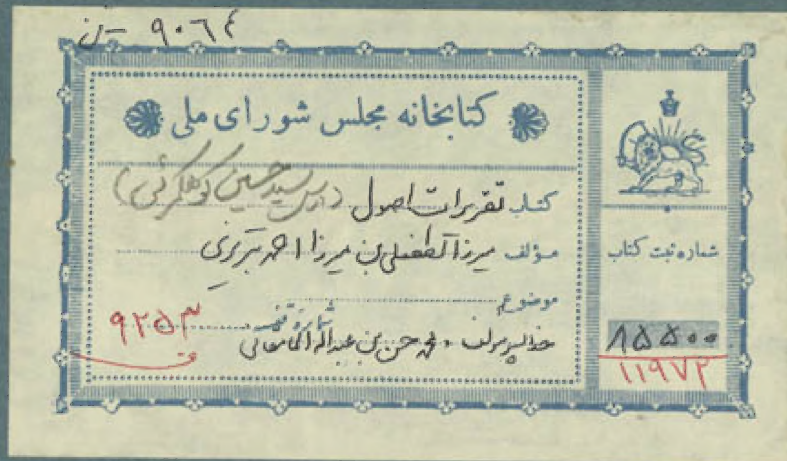 ن - ۹۰٦٤
کتابخانه مجلس شورای ملی
کتاب تقریرات اصول (درس سید حسین کوهکمری)
مؤلف میرزا لطفعلی بن میرزا احمد تبریزی
موضوع
شماره قفسه ۹۲۵۳
خط پسر مؤلف و محمد حسن بن عبدالله المامقانی
شماره ثبت کتاب
۸۵۵۰۰
۱۱۹۷۲